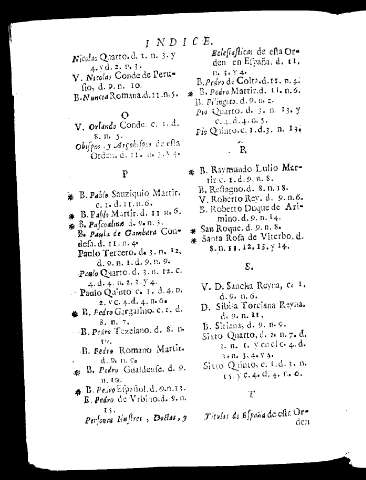 INDICE.
Nicolas Quarto. d. 1. n. 3. y
4. y d. 2. n. 3.
V. Nicolas Conde de Peru-
sio, d. 9. n. 10.
B. Nuncea Romana. d. 11. n. 5.
O
V. Orlando Conde. c. 1. d.
8. n. 5.
Obispos, y Arçobispos de esta
Orden. d. 11. n. 3. y 4.
P
* B. Pablo Sauziquio Martir.
c. 1. d. 11. n. 6.
* B. Pablo Martir. d. 11. n. 6.
* B. Pascualino d. 9. n. 3.
* B. Paula de Gambara Con-
desa. d. 11. n. 4.
Paulo Tercero. d. 3. n. 12.
d. 9. n. 1. d. 9. n. 9.
Paulo Quarto. d. 3. n. 12. c.
4. d. 4. n. 5.
Paulo Quinto c. 1. d. 4. n.
2. y c. 4. d. 4. n. 6.
* B. Pedro Gargalino. c. 1. d.
8. n. 7.
B. Pedro Tezelano. d. 8. n.
B. Pedro Romano Martir.
d. 9. n. 9.
* B. Pedro Gualdense. d. 9.
n. 10.
* B. Pedro Español. d. 9. n. 13.
B. Pedro de Vrbino. d. 9. n.
15.
Personas Ilustres, Doctas, y
Eclesiasticas de esta Or-
den en España. d. 11.
n. 3. y 4.
B. Pedro de Colta. d. 11. n. 4.
* B. Pedro Martir. d. 11. n. 6.
B. d. 9. n. 2.
Pio Quarto. d. 3. n. 13. y
c. 4. d. 4. n. 5.
Pio Quinto. c. 1. d. 3. n. 13.
R.
* B. Raymundo Lulio Mar-
tir c. 1. d. 9. n. 8.
B. Resiagno. d. 8. n. 18.
V. Roberto Rey. d. 9. n. 6.
B. Roberto Duque de Ari-
mino. d. 9. n. 14.
* San Roque. d. 9. n. 8.
* Santa Rosa de Viterbo. d.
8. n. 11, 12, 13, y 14.
S.
V. D. Sancha Reyna, c. 1.
d. 9. n. 6.
D. Sibila Torciana Reyna.
d. 9. n. 11.
B. d. 9. n. 9.
Sixto Quarto, d. 2. n. 7. d.
3. n. 1. y en el c. 4. d.
3. n. 3. 4. y 5.
Sixto Quinto, c. 1. d. 3. n.
15. y c. 4. d. 4. n. 6.
T
Titulos de España de esta Or-
den